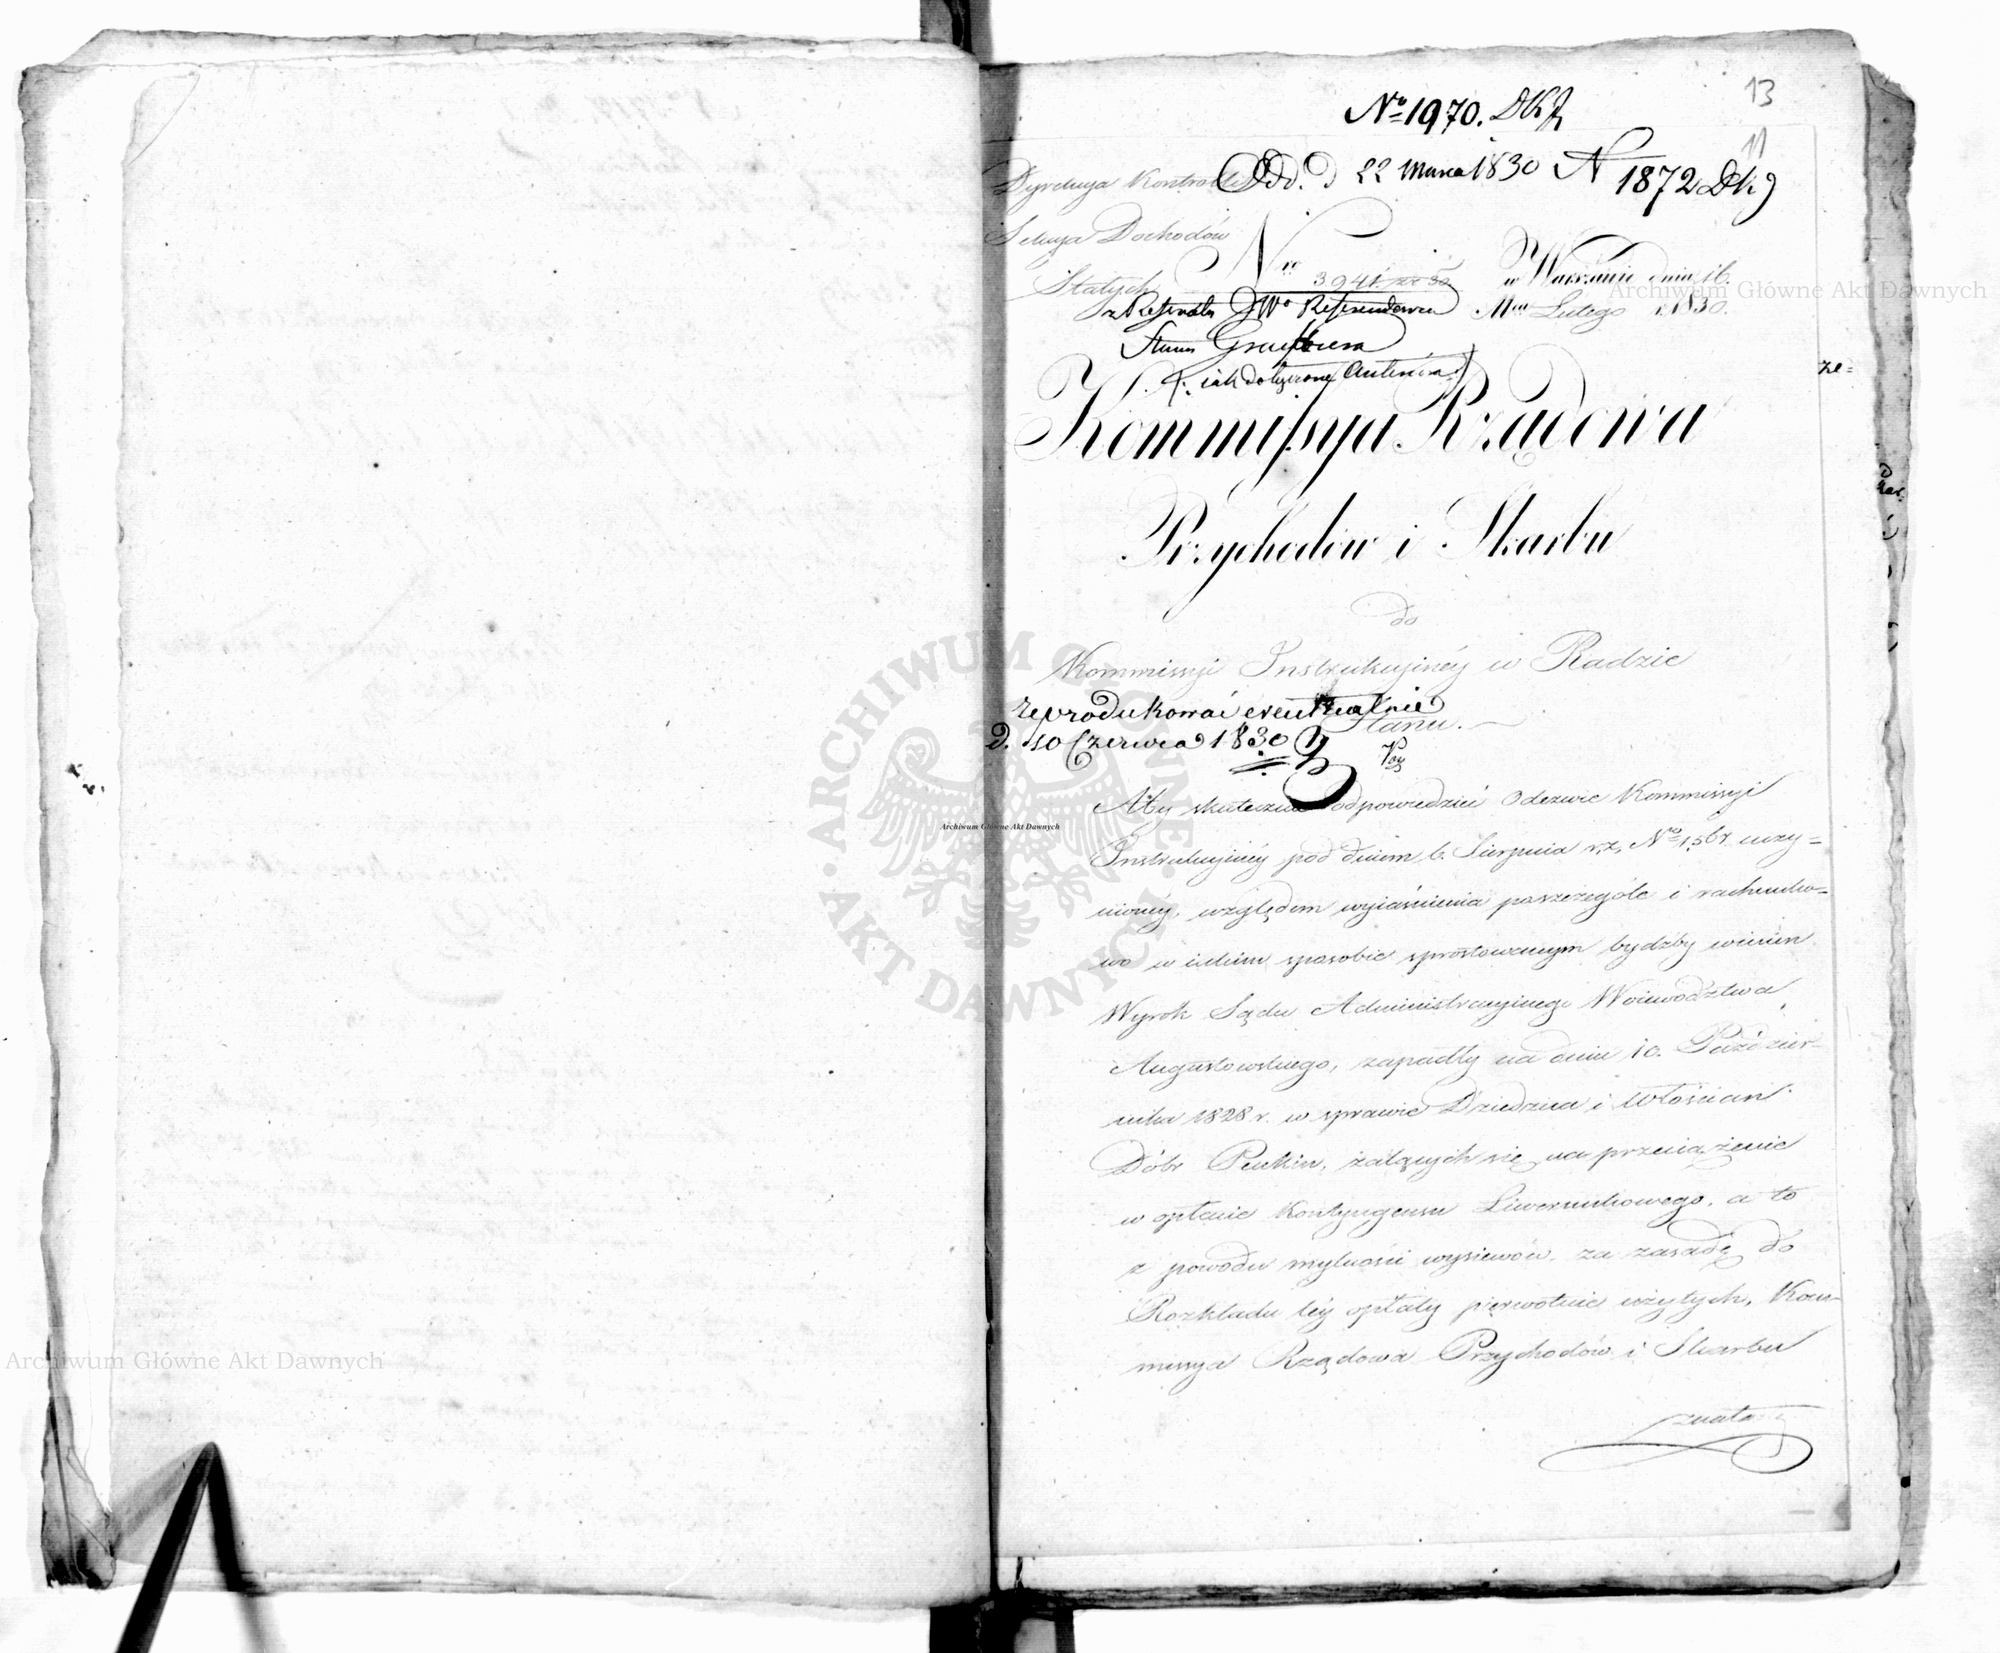 13
11
No 1970. DKJ
Odd. d 22 Marca 1830 N 1872 Dkg
Dyrekcya Kontrolli
Sekcya Dochodów
Stałych
Nro 3941
w Warszawie dnia 16.
Mca Lutego r. 1830.
z Referatu JWo Referendarza
Stanu
Kommissya Rządowa
Przychodów i Skarbu
do
Kommissyi Instrukcyinéy w Radzie
Stanu.
reprodukować eventualnie
d. 10 Czerwca 1830
Aby skutecznie odpowiedzieć Odezwie Kommissyi
Instrukcyinéy pod dniem 6. Sierpnia r. z. No 1567 uczy=
nionéy, względem wyiaśnienia poszczególe i rachunko=
wo w iakim sposobie sprostowanym bydźby winien
Wyrok Sądu Administracyinego Woiewództwa
Augustowskiego, zapadły na dniu 10. Paździer-
nika 1828 r. w sprawie Dziedzica i Włościan
Dóbr Penkin, żalących się na przeciążenie
w opłacie Kontyngensu Liwerunkowego, a to
z powodu mylności wysiewów, za zasadę do
Rozkładu téy opłaty pierwotnie użytych, Kom-
missya Rządowa Przychodów i Skarbu
ze=
Archiwum Główne Akt Dawnych
Archiwum Główne Akt Dawnych
Archiwum Główne Akt Dawnych
ARCHIWUM GŁÓWNE AKT DAWNYCH